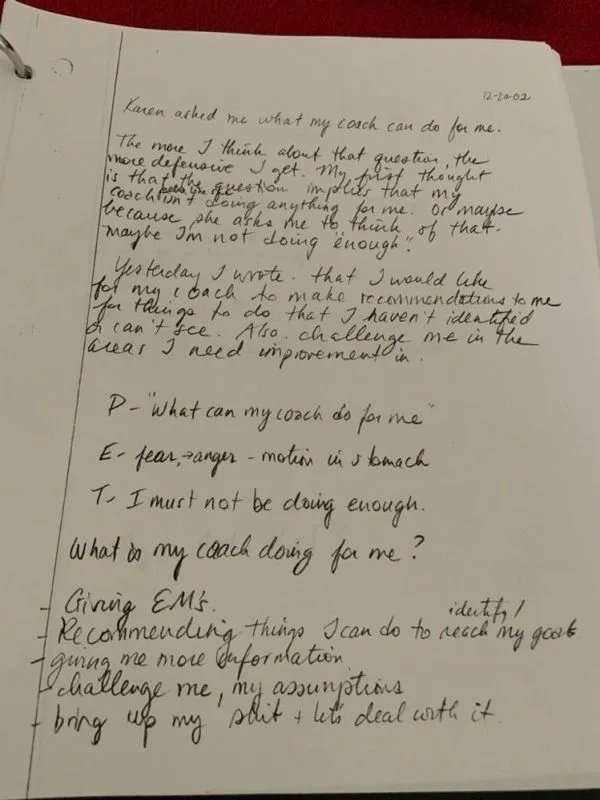 12-20-02
Karen asked me what my coach can do for me.
The more I think about that question, the
more defensive I get. My first thought
is that the question implies that my
coach isn't doing anything for me. Or maybe
because she asks me to think of that.
maybe I'm not doing "enough".
Yesterday I wrote. that I would like
for my coach to make recommendations to me
for things to do that I haven't identified
or can't see. Also. challenge me in the
areas I need improvement in.
P - "What can my coach do for me"
E - fear, → anger - motion in stomach
T - I must not be doing enough.
What is my coach doing for me?
- Giving EM's.
identify /
- Recommending things I can do to reach my goals
- giving me more information
- challenge me, my assumptions
- bring up my shit + let's deal with it.